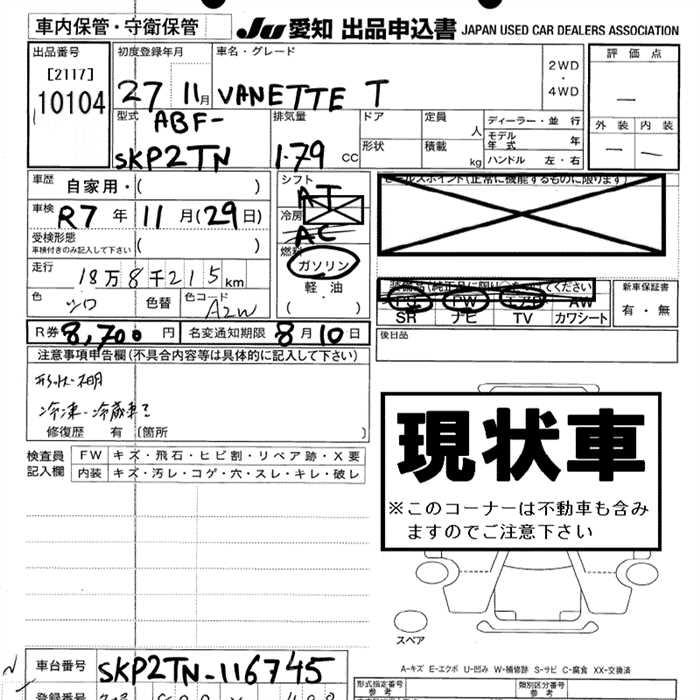 車内保管・守衛保管 JU 愛知 出品申込書 JAPAN USED CAR DEALERS ASSOCIATION
出品番号 初度登録年月 車名・グレード 評価点
[2117] 2WD・4WD
10104 27 11月 VANETTE T
型式 排気量 ドア 定員 人 ディーラー・並行 外装 内装
ABF- モデル年式 年
SKP2TN 1.79 CC 形状 積載 kg ハンドル 左・右
車歴 自家用・( ) シフト AT セールスポイント(正常に機能するものに限ります)
車検 R7年 11月(29日) 冷房 AC
受検形態 車検付きのみ記入して下さい ( ) 燃料
走行 18万8千215km ガソリン
軽油
( )
色 シロ 色替 色コード A2W
装備品(純正品に限り○をつけてください) 新車保証書
PS PW エアB AW 有・無
SR ナビ TV カワシート
R券 8,700円 名変通知期限 8月10日 後日品
注意事項申告欄(不具合内容等は具体的に記入して下さい)
冷凍・冷蔵車
修復歴 有 (箇所 )
現状車
※このコーナーは不動車も含みますのでご注意下さい
検査員記入欄 FW キズ・飛石・ヒビ割・リペア跡・X要
内装 キズ・汚レ・コゲ・穴・スレ・キレ・破レ
スペア
A-キズ E-エクボ U-凹み W-補修跡 S-サビ C-腐食 XX-交換済
車台番号 SKP2TN-116745 形式指定番号 参考 類別区分番号 参考
登録番号